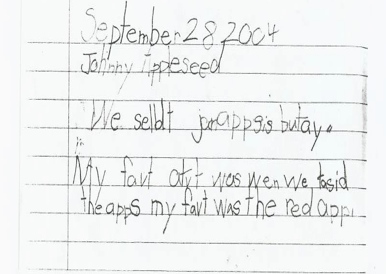 September 28 2004
Johnny Appleseed
We selldt jonappsis butay.
in
My favt atvt was wen we tasid
the apps my favt was the red app